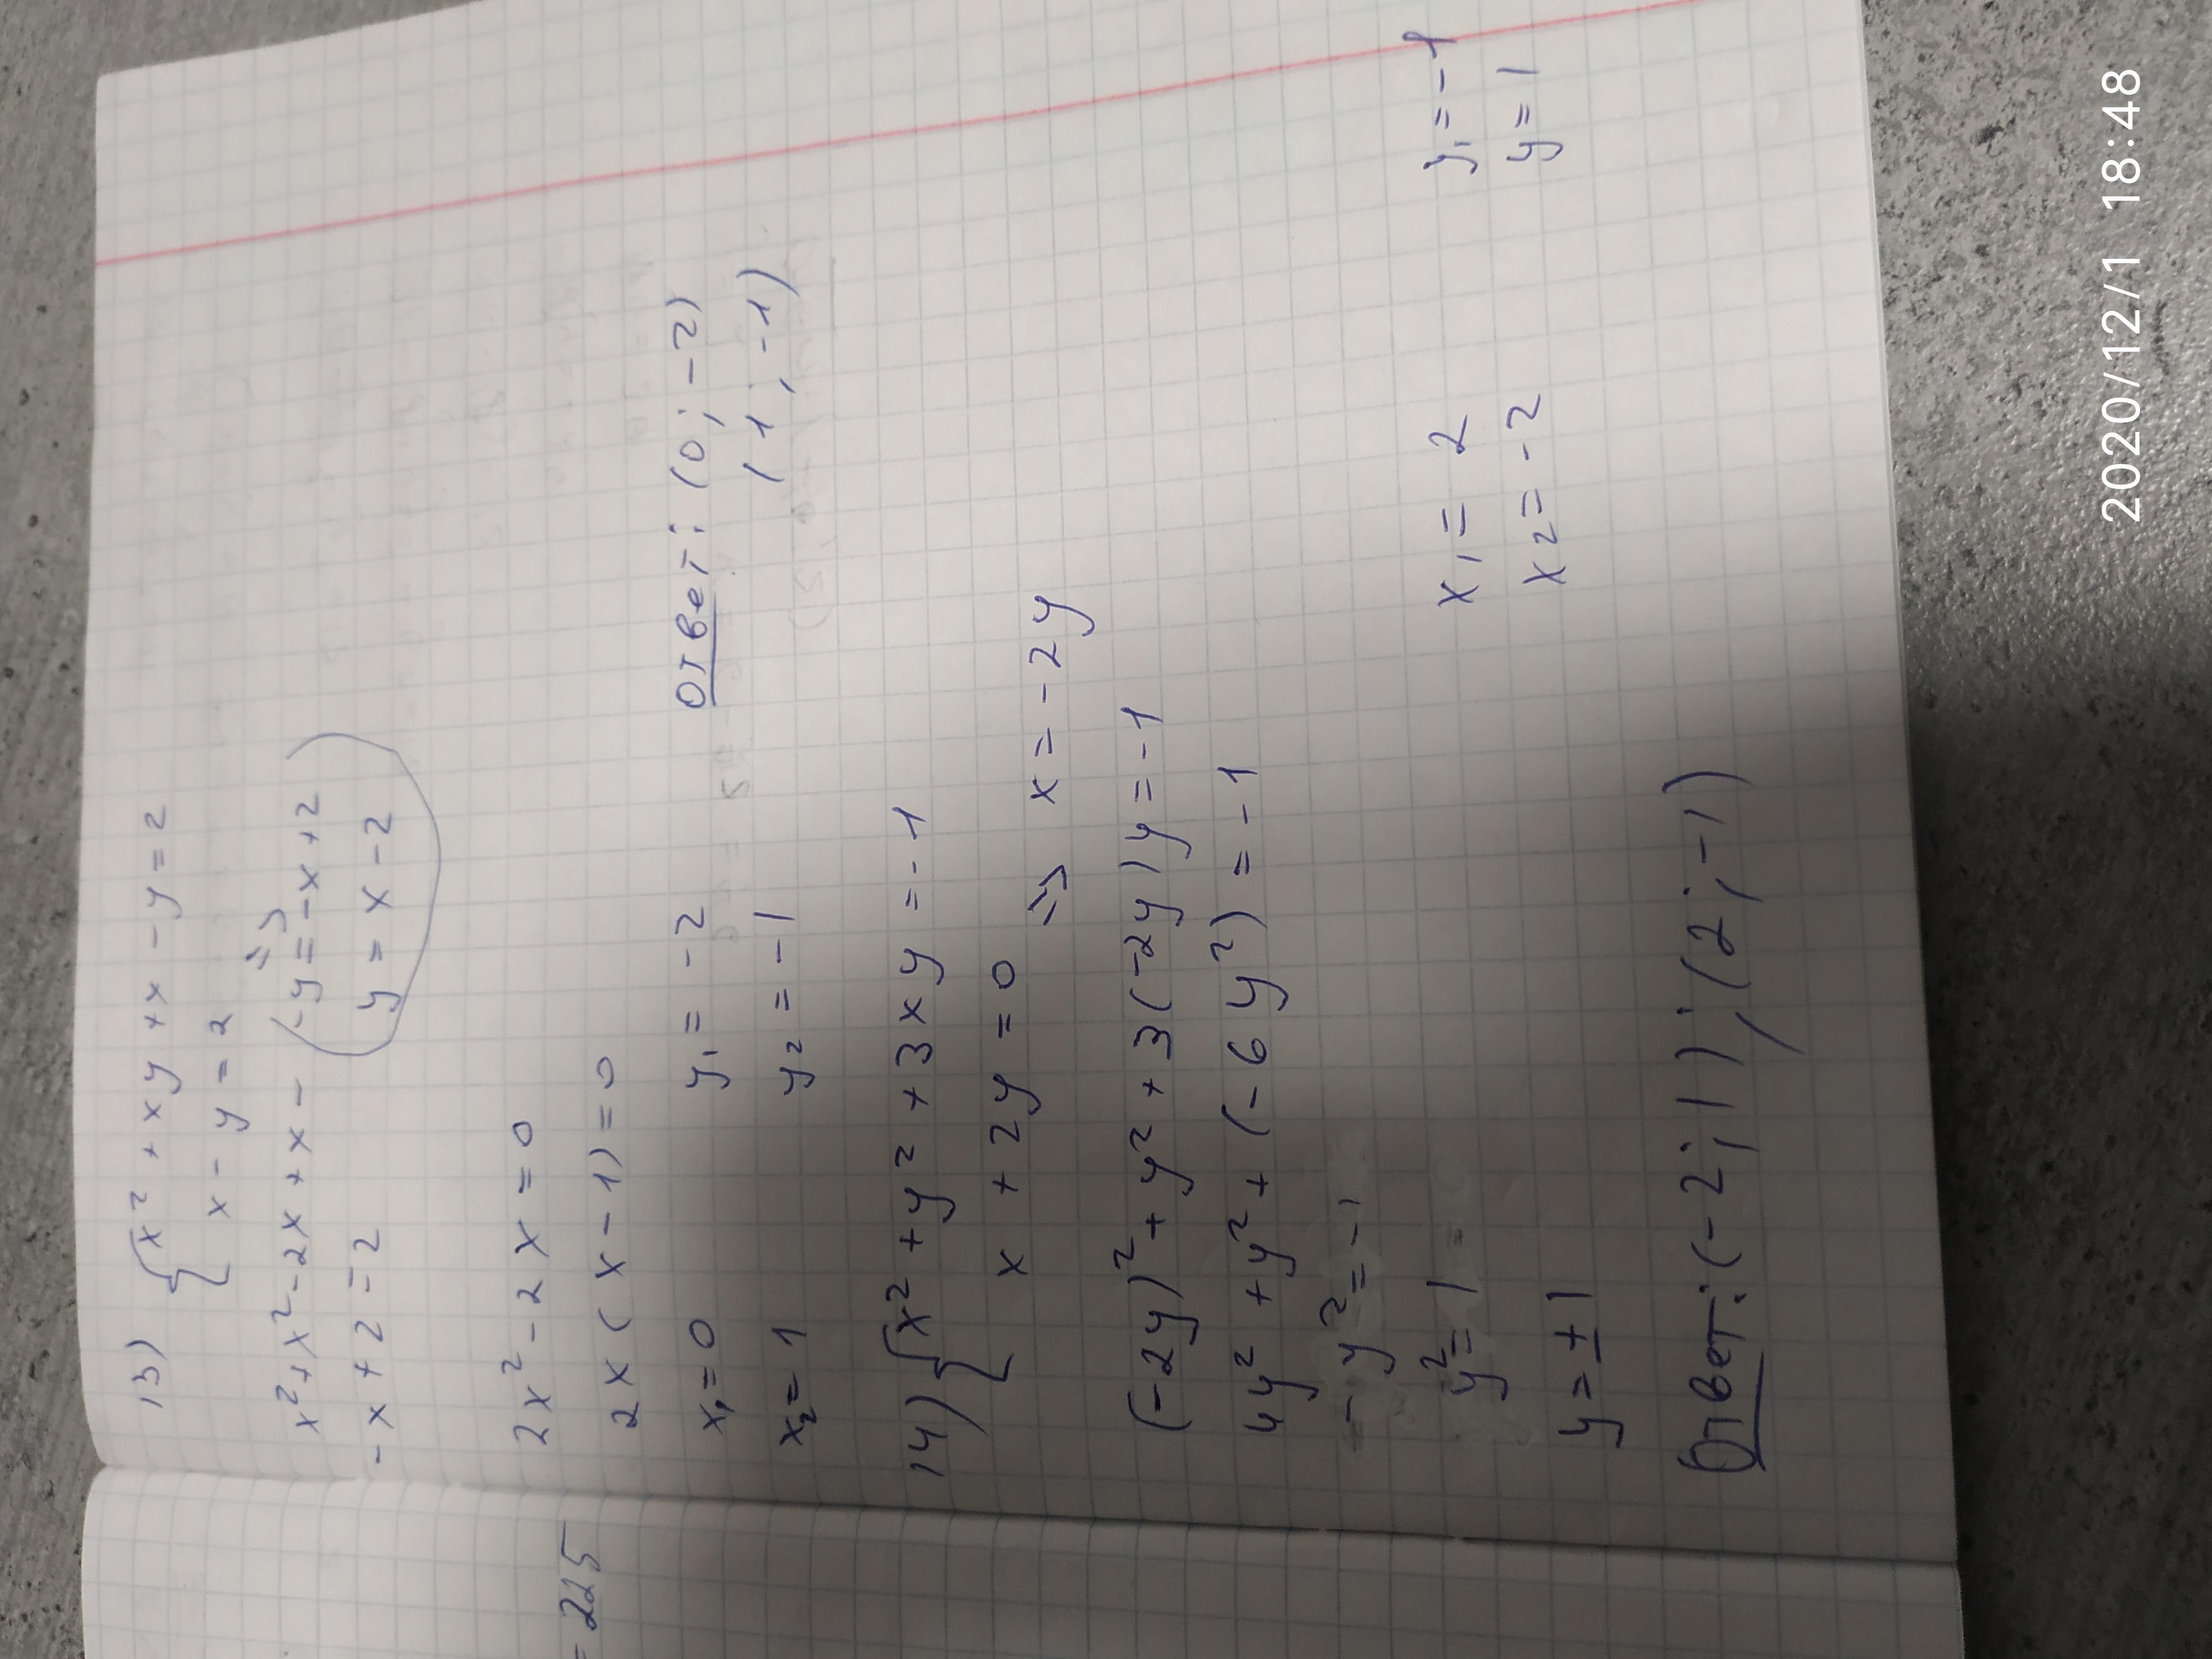 13) { x² + xy + x - y = 2
x - y = 2
=>
x² + x² - 2x + x - ( -y = -x + 2
- x + 2 = 2
y = x - 2 )
2x² - 2x = 0
2x (x - 1) = 0
x₁ = 0 y₁ = -2 Ответ: (0; -2)
x₂ = 1 y₂ = -1 (1; -1)
14) { x² + y² + 3xy = -1
x + 2y = 0 => x = -2y
(-2y)² + y² + 3(-2y)y = -1
4y² + y² + (-6y²) = -1
- y² = -1
y² = 1 x₁ = 2 y₁ = -1
y = ±1 x₂ = -2 y = 1
Ответ: (-2; 1); (2; -1)
= 225
2020/12/1 18:48